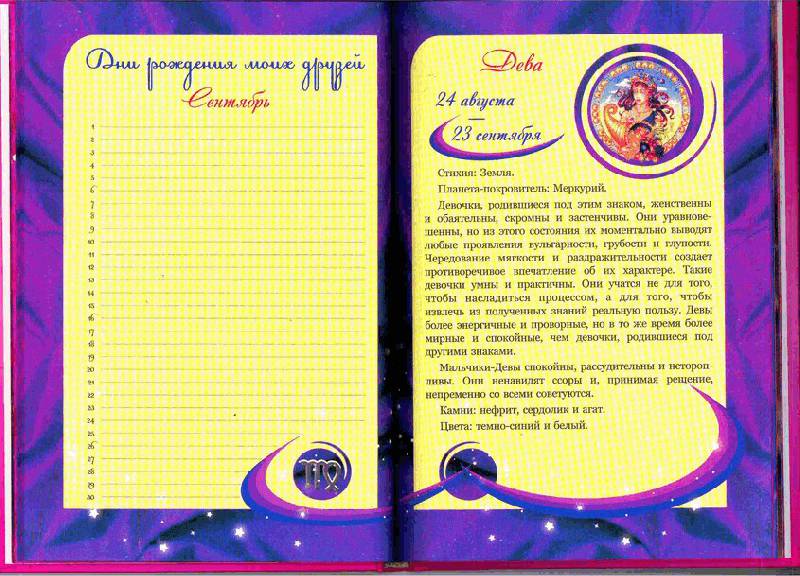 Дни рождения моих друзей
Сентябрь
1
2
3
4
5
6
7
8
9
10
11
12
13
14
15
16
17
18
19
20
21
22
23
24
25
26
27
28
29
30
Дева
24 августа
—
23 сентября
Стихия: Земля.
Планета-покровитель: Меркурий.
Девочки, родившиеся под этим знаком, женственны
и обаятельны, скромны и застенчивы. Они уравнове-
шенны, но из этого состояния их моментально выводят
любые проявления вульгарности, грубости и глупости.
Чередование мягкости и раздражительности создает
противоречивое впечатление об их характере. Такие
девочки умны и практичны. Они учатся не для того,
чтобы насладиться процессом, а для того, чтобы
извлечь из полученных знаний реальную пользу. Девы
более энергичные и проворные, но в то же время более
мирные и спокойные, чем девочки, родившиеся под
другими знаками.
Мальчики-Девы спокойны, рассудительны и нетороп-
ливы. Они ненавидят ссоры и, принимая решение,
непременно со всеми советуются.
Камни: нефрит, сердолик и агат.
Цвета: темно-синий и белый.